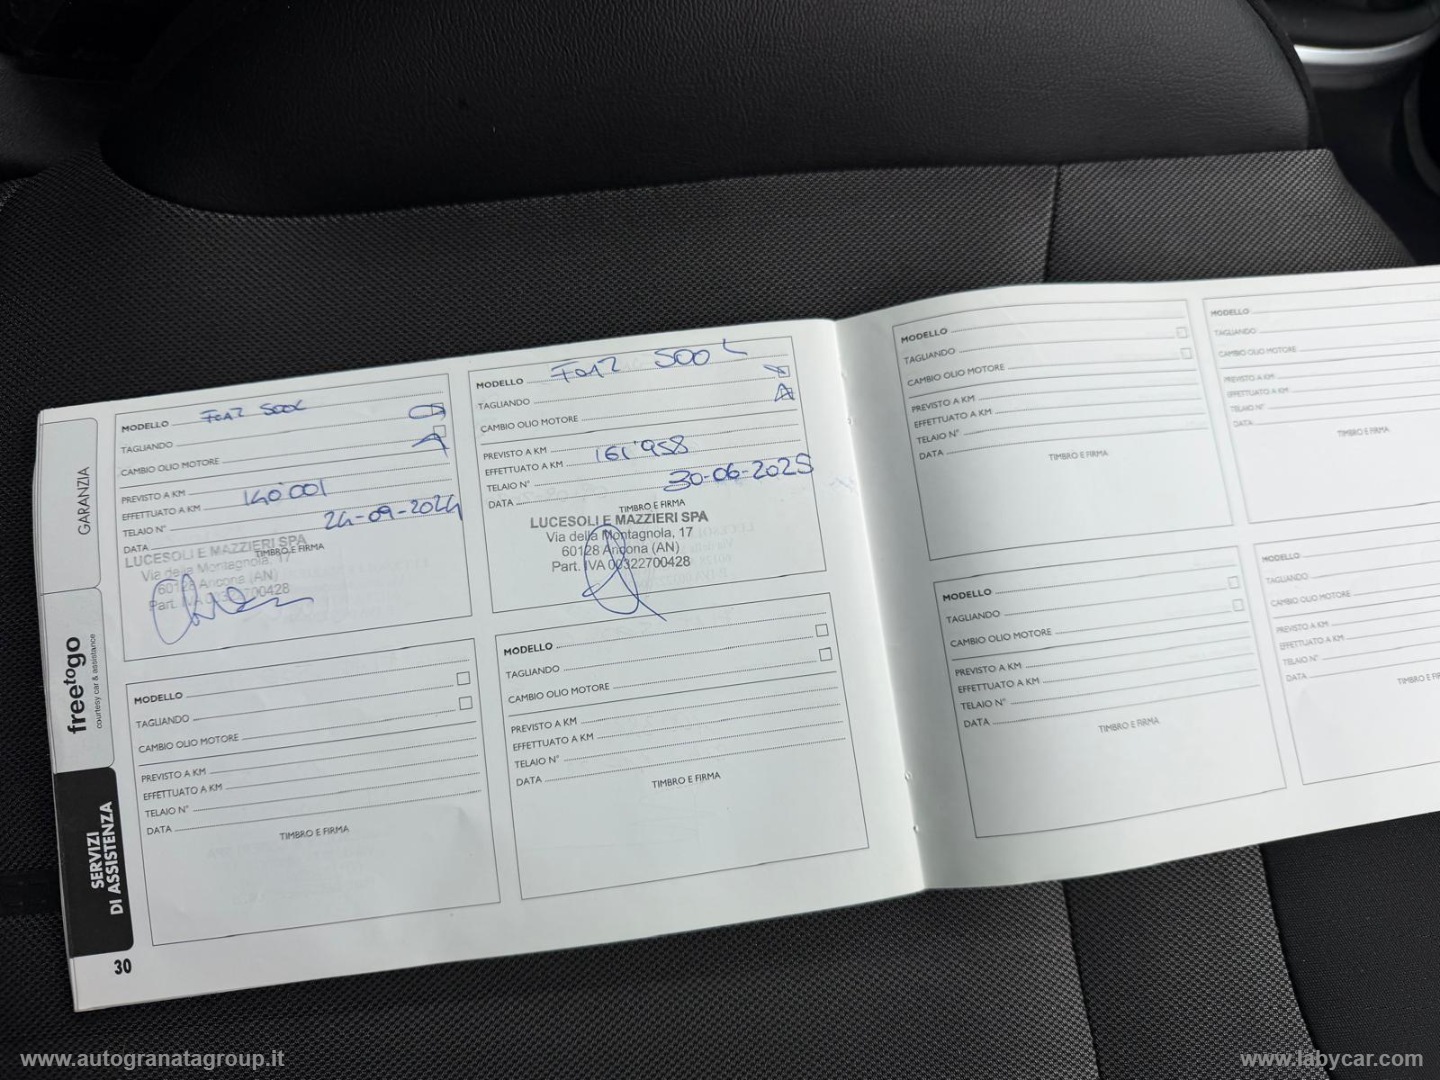 GARANZIA
freetogo
courtesy car & assistance
SERVIZI
DI ASSISTENZA
30
MODELLO FIAT 500L
TAGLIANDO
CAMBIO OLIO MOTORE
PREVISTO A KM
EFFETTUATO A KM 140'001
TELAIO N°
DATA 24-09-2024
TIMBRO E FIRMA
LUCESOLI E MAZZIERI SPA
Via della Montagnola, 17
60128 Ancona (AN)
Part. IVA 00322700428
MODELLO FIAT 500 L
TAGLIANDO
CAMBIO OLIO MOTORE
PREVISTO A KM
EFFETTUATO A KM 161'958
TELAIO N°
DATA 30-06-2025
TIMBRO E FIRMA
LUCESOLI E MAZZIERI SPA
Via della Montagnola, 17
60128 Ancona (AN)
Part. IVA 00322700428
MODELLO
TAGLIANDO
CAMBIO OLIO MOTORE
PREVISTO A KM
EFFETTUATO A KM
TELAIO N°
DATA
TIMBRO E FIRMA
MODELLO
TAGLIANDO
CAMBIO OLIO MOTORE
PREVISTO A KM
EFFETTUATO A KM
TELAIO N°
DATA
TIMBRO E FIRMA
MODELLO
TAGLIANDO
CAMBIO OLIO MOTORE
PREVISTO A KM
EFFETTUATO A KM
TELAIO N°
DATA
TIMBRO E FIRMA
MODELLO
TAGLIANDO
CAMBIO OLIO MOTORE
PREVISTO A KM
EFFETTUATO A KM
TELAIO N°
DATA
TIMBRO E FIRMA
MODELLO
TAGLIANDO
CAMBIO OLIO MOTORE
PREVISTO A KM
EFFETTUATO A KM
TELAIO N°
DATA
TIMBRO E FIRMA
MODELLO
TAGLIANDO
CAMBIO OLIO MOTORE
PREVISTO A KM
EFFETTUATO A KM
TELAIO N°
DATA
TIMBRO E FI
www.autogranatagroup.it
www.labycar.com